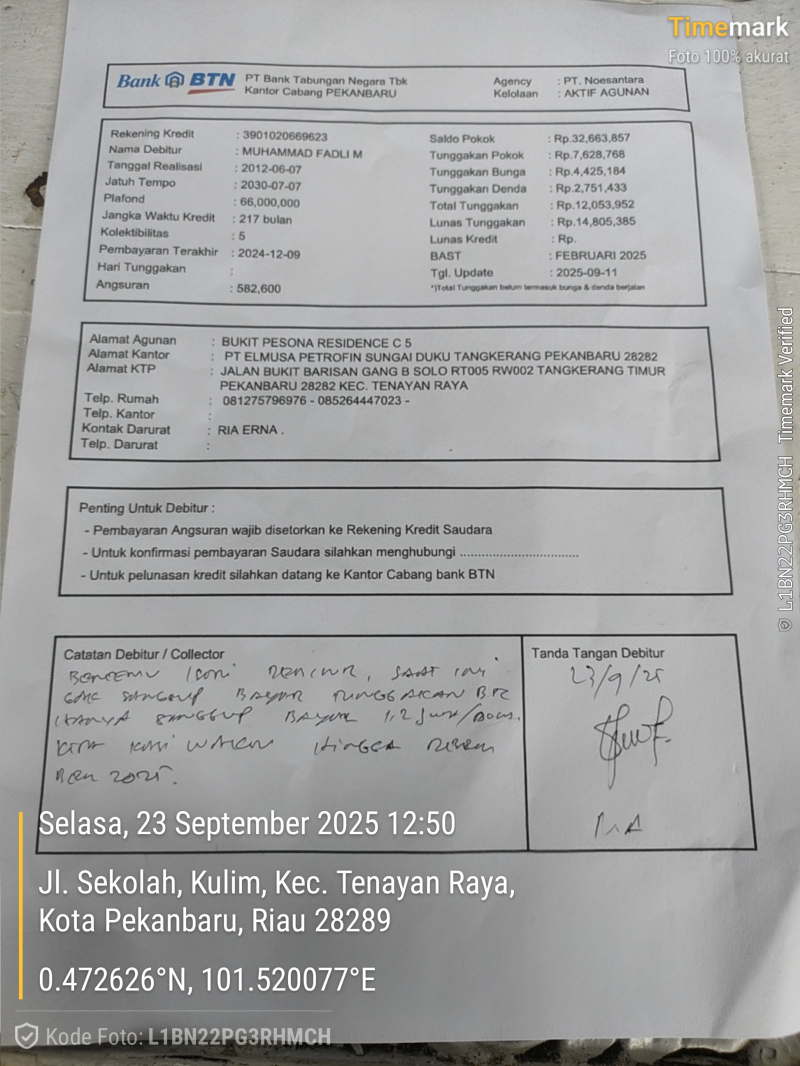 Timemark
Foto 100% akurat
Bank BTN
PT Bank Tabungan Negara Tbk
Kantor Cabang PEKANBARU
Agency : PT. Noesantara
Kelolaan : AKTIF AGUNAN
Rekening Kredit : 3901020669623
Nama Debitur : MUHAMMAD FADLI M
Tanggal Realisasi : 2012-06-07
Jatuh Tempo : 2030-07-07
Plafond : 66,000,000
Jangka Waktu Kredit : 217 bulan
Kolektibilitas : 5
Pembayaran Terakhir : 2024-12-09
Hari Tunggakan :
Angsuran : 582,600
Saldo Pokok : Rp.32,663,857
Tunggakan Pokok : Rp.7,628,768
Tunggakan Bunga : Rp.4,425,184
Tunggakan Denda : Rp.2,751,433
Total Tunggakan : Rp.12,053,952
Lunas Tunggakan : Rp.14,805,385
Lunas Kredit : Rp.
BAST : FEBRUARI 2025
Tgl. Update : 2025-09-11
*)Total Tunggakan belum termasuk bunga & denda berjalan
Alamat Agunan : BUKIT PESONA RESIDENCE C 5
Alamat Kantor : PT ELMUSA PETROFIN SUNGAI DUKU TANGKERANG PEKANBARU 28282
Alamat KTP : JALAN BUKIT BARISAN GANG B SOLO RT005 RW002 TANGKERANG TIMUR
PEKANBARU 28282 KEC. TENAYAN RAYA
Telp. Rumah : 081275796976 - 085264447023 -
Telp. Kantor :
Kontak Darurat : RIA ERNA .
Telp. Darurat :
Penting Untuk Debitur :
- Pembayaran Angsuran wajib disetorkan ke Rekening Kredit Saudara
- Untuk konfirmasi pembayaran Saudara silahkan menghubungi ................................
- Untuk pelunasan kredit silahkan datang ke Kantor Cabang bank BTN
Catatan Debitur / Collector
BERTEMU ISTRI DEBITUR, SAAT INI
SANGGUP BAYAR TUNGGAKAN
HANYA SANGGUP BAYAR 1.2 JUTA
KITA KASI WAKTU HINGGA
2025.
Tanda Tangan Debitur
23/9/25
RIA
Selasa, 23 September 2025 12:50
Jl. Sekolah, Kulim, Kec. Tenayan Raya,
Kota Pekanbaru, Riau 28289
0.472626°N, 101.520077°E
Kode Foto: L1BN22PG3RHMCH
© L1BN22PG3RHMCH Timemark Verified